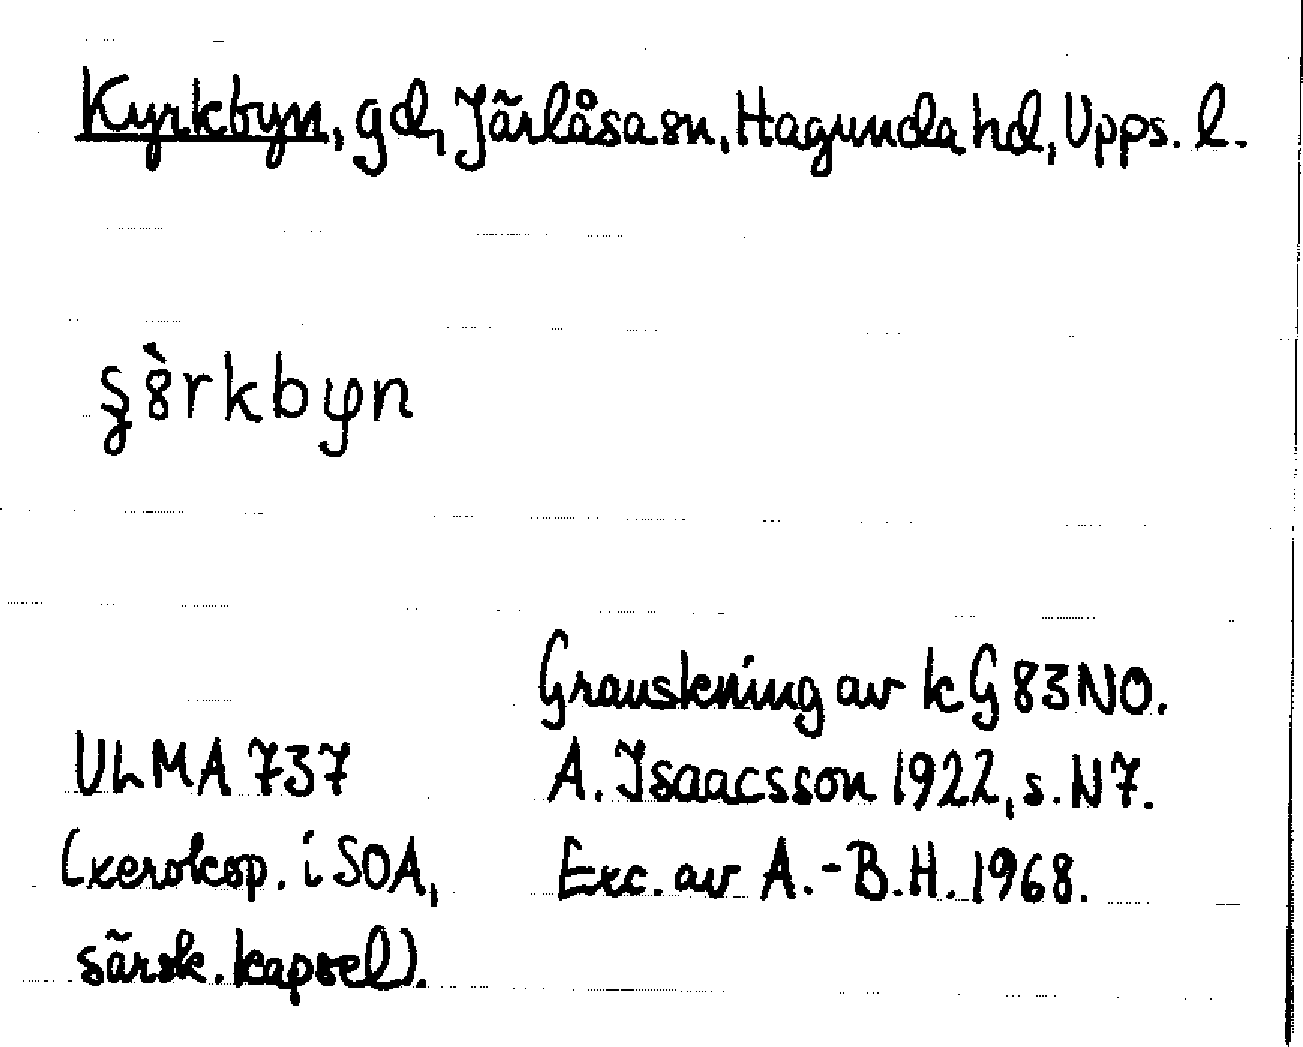 Kyrkbyn, gd, Järlåsa sn, Hagunda hd, Upps. l.
Granskning av kG 83NO.
ULMA 737 A. Isaacsson 1922, s. N7.
(xerokop. i SOA, Exc. av A.-B.H. 1968.
särsk. kapsel).